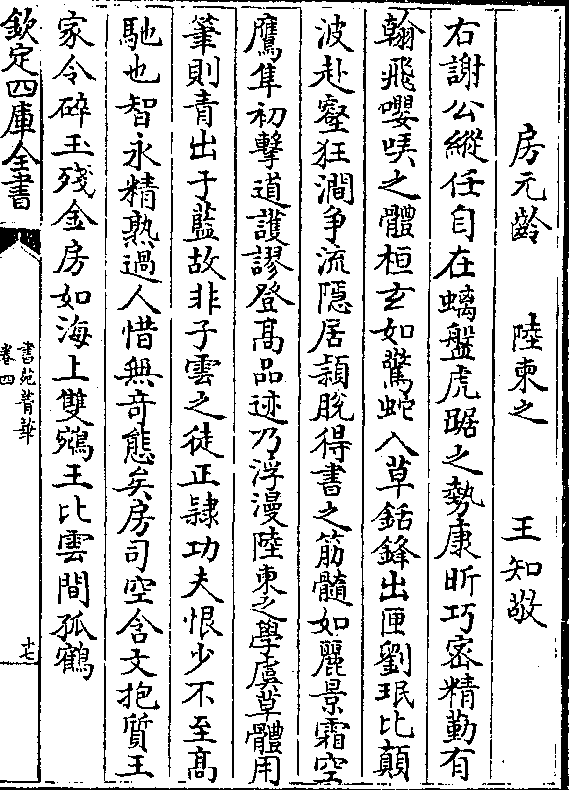 房元齡　陸柬之　王知敬
右謝公縱任自在螭盤虎踞之勢康昕巧密精勤有
翰飛嚶唳之體桓玄如驚蛇入草銛鋒出匣劉珉比顛
波赴壑狂澗爭流隠居頴脫得書之筋髓如麗景霜空
鷹隼初擊道護謬登髙品迹乃浮漫陸柬之學虞草體用
筆則青出于藍故非子雲之徒正隷功夫恨少不至髙
馳也智永精熟過人惜無竒態矣房司空含文抱質王
家令碎玉殘金房如海上雙鵷王比雲間孤鶴
欽定四庫全書
書苑菁華
卷四
十七